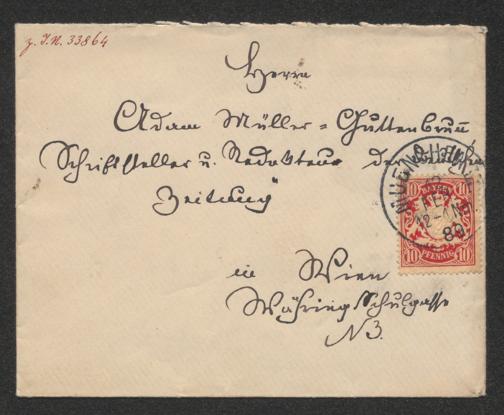 z. I.N. 33864
Herrn
Adam Müller=Guttenbrunn
Schriftsteller u. Redakteur der
Zeitung"
in Wien
Währing Schulgasse
N 3.
MUENCHEN
12-1 N
89
BAYERN
10 10
10 PFENNIG 10